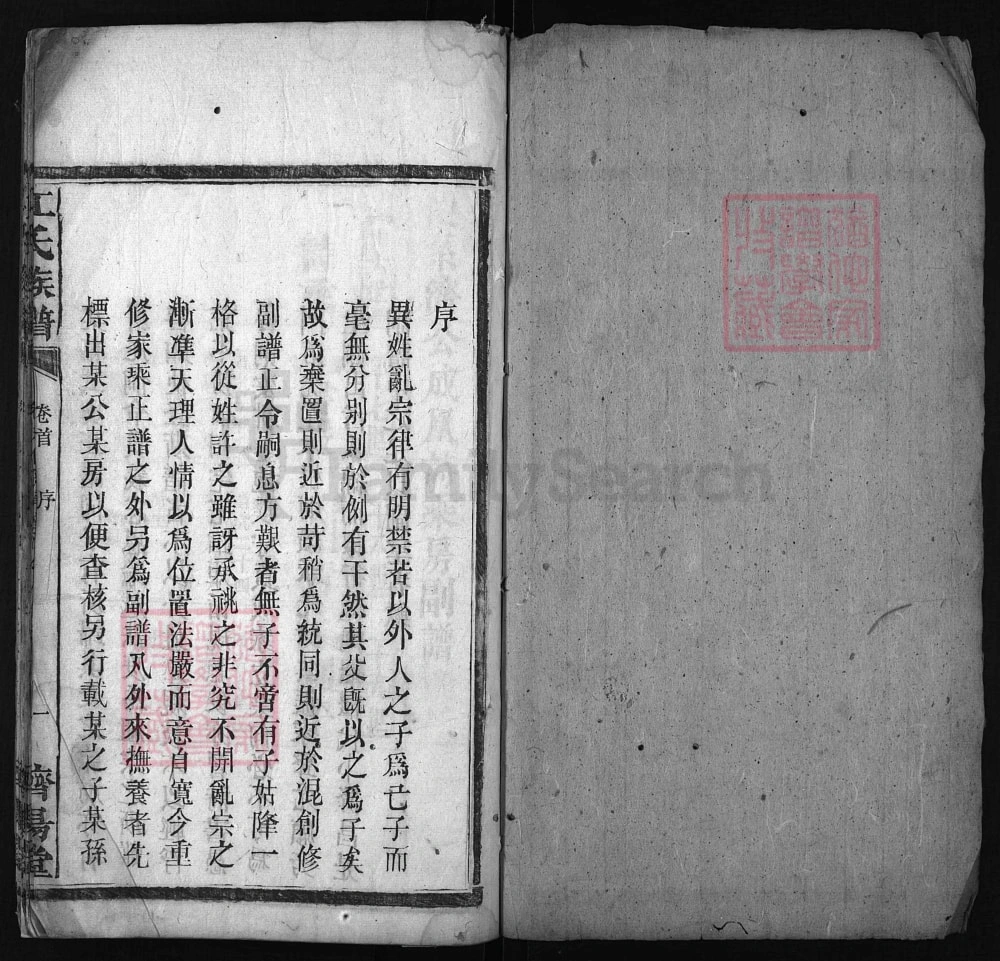 序
異姓亂宗律有明禁若以外人之子爲己子而
毫無分别則於例有干然其父旣以之爲子矣
故爲棄置則近於苛稍爲統同則近於混創修
副譜正令嗣息方艱者無子不啻有子姑降一
格以從姓許之雖訝承祧之非究不開亂宗之
漸準天理人情以爲位置法嚴而意自寬今重
修家乘正譜之外另爲副譜凡外來撫養者先
標出某公某房以便查核另行載某之子某孫
江氏族譜
卷首
序
一
濟陽堂
FamilySearch